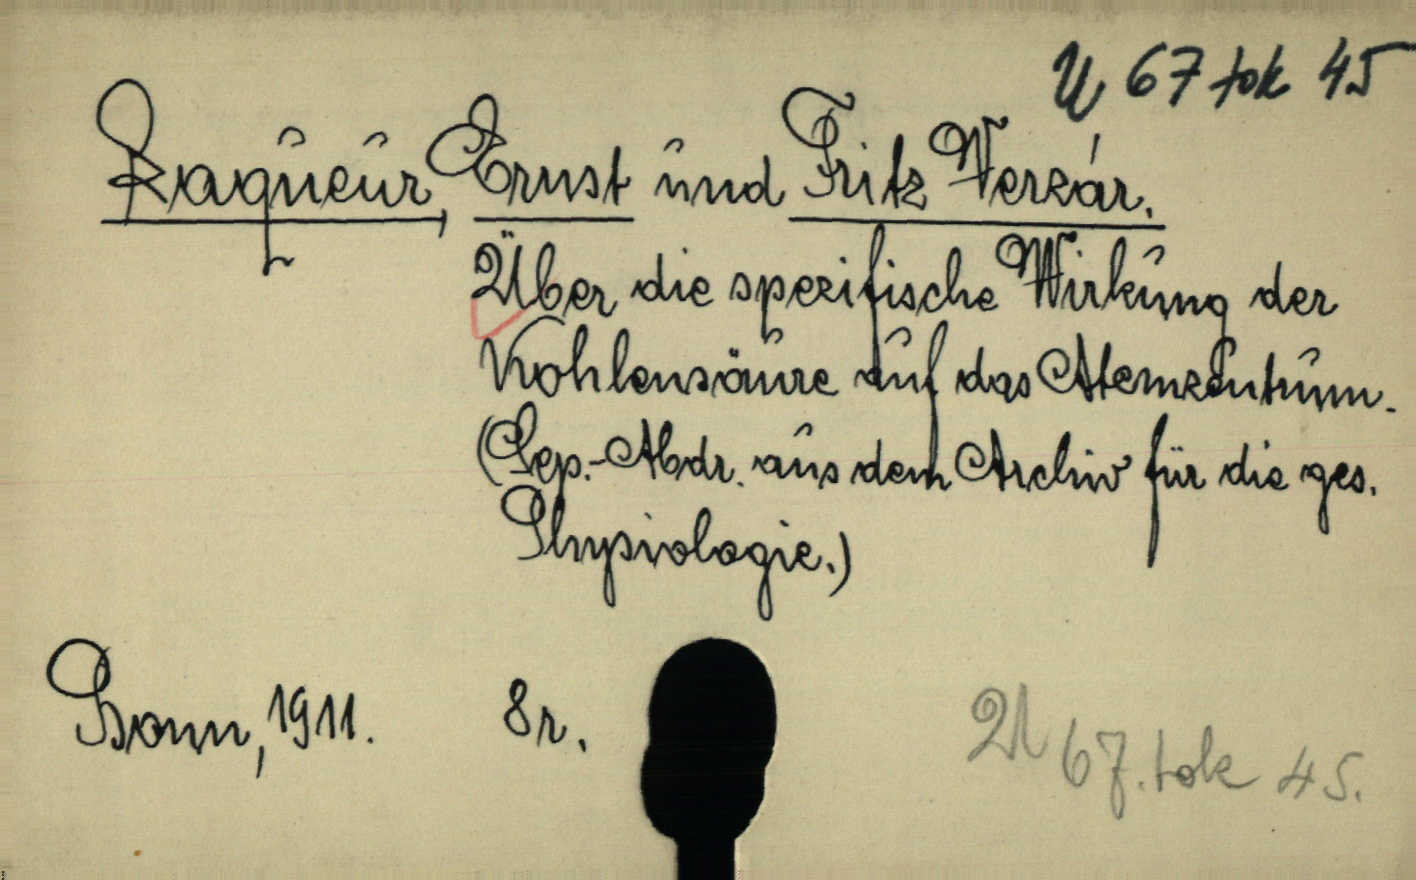 U 67 tok 45
Laqueur, Ernst und Fritz Verzár.
Über die spezifische Wirkung der
Kohlensäure auf das Atemzentrum.
(Sep.-Abdr. aus dem Archiv für die ges.
Physiologie.)
Bonn, 1911. 8r.
U 67. tok 45.